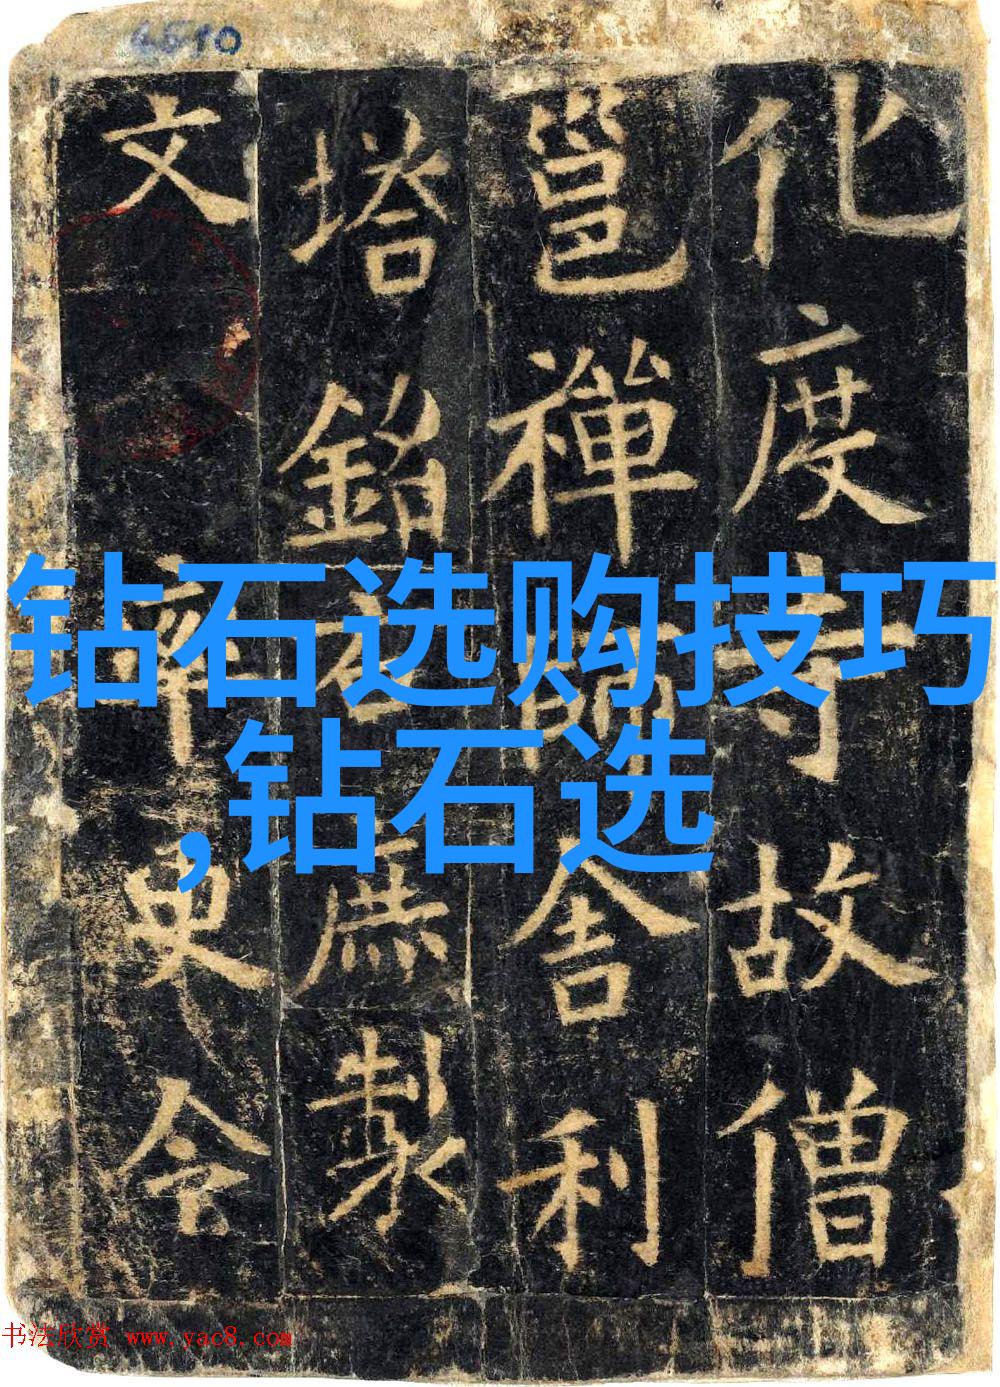 化度寺故僧
邕禪師舍利
塔銘 右庶製
文 率更令
钻石选购技巧
,钻石选
书法欣赏 www.yac8.com